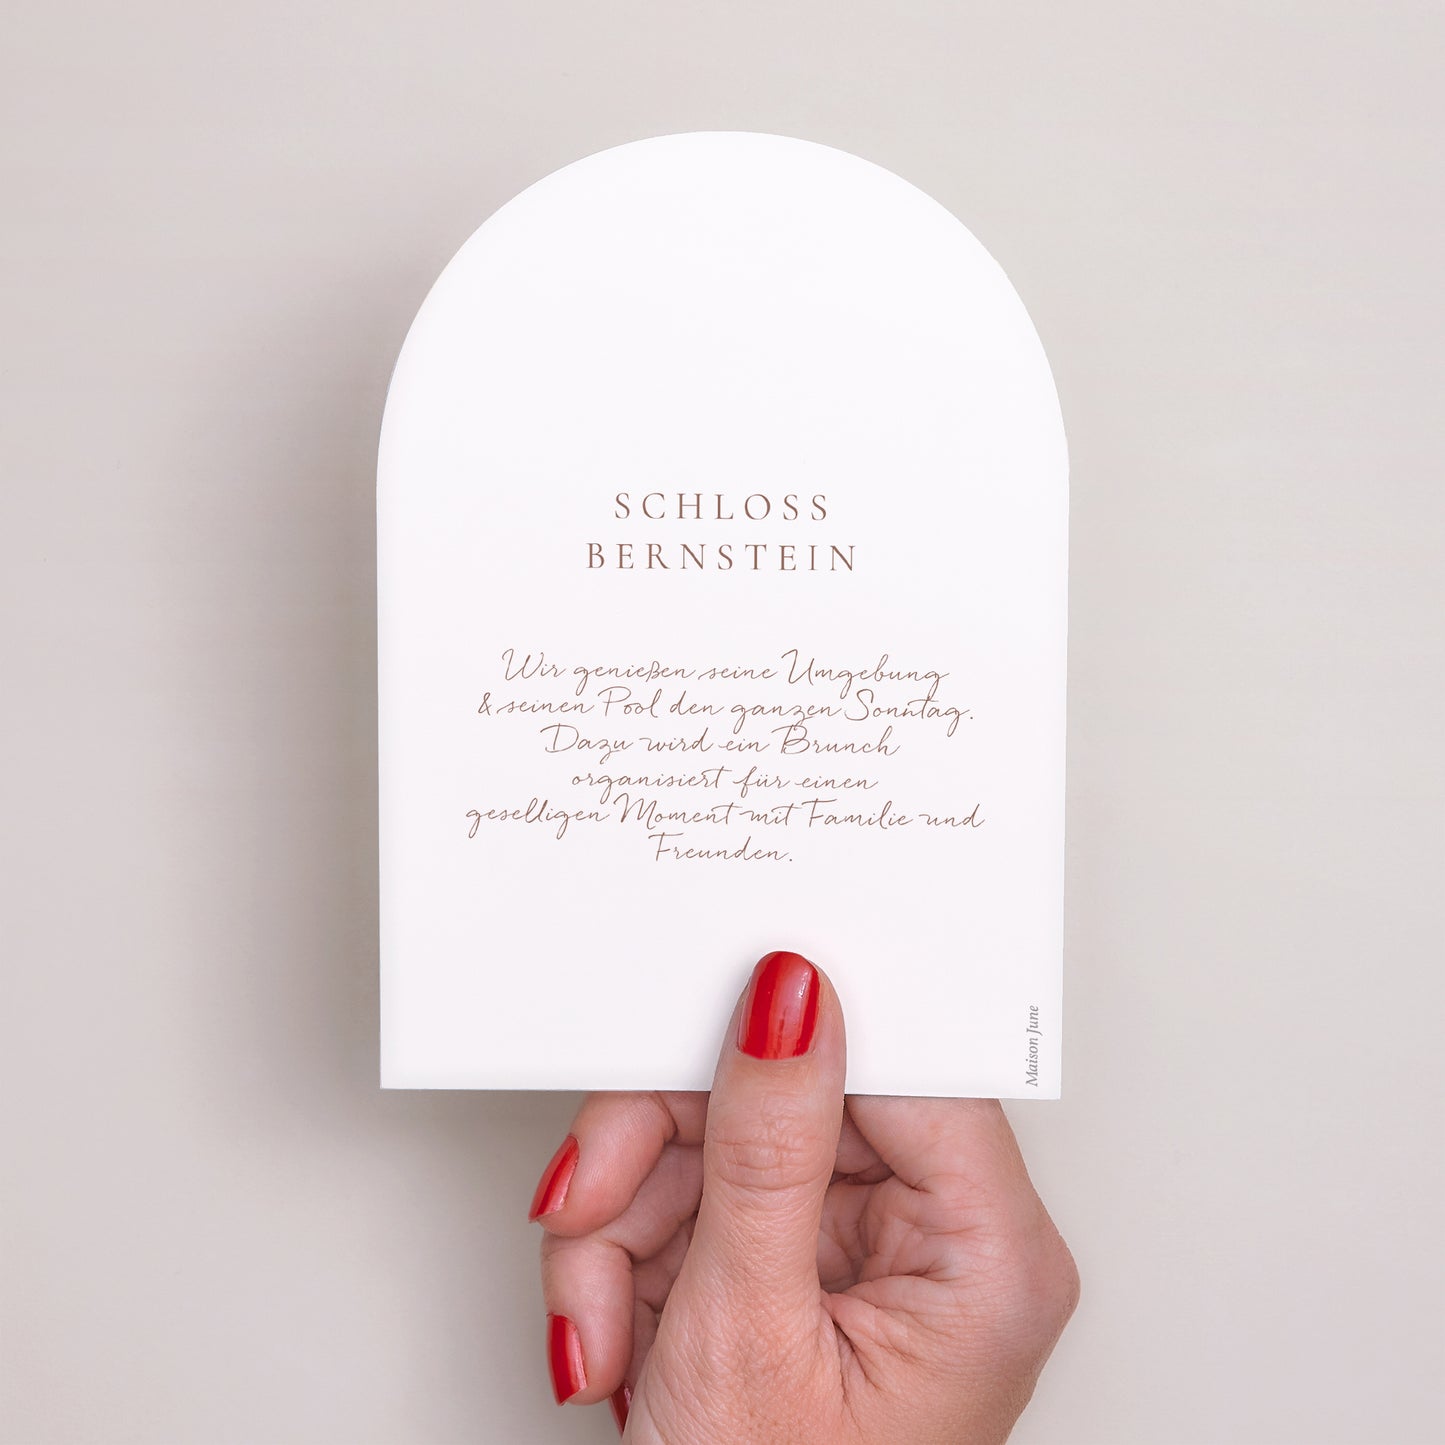 SCHLOSS
BERNSTEIN
Wir genießen seine Umgebung
& seinen Pool den ganzen Sonntag.
Dazu wird ein Brunch
organisiert für einen
geselligen Moment mit Familie und
Freunden.
Maison June